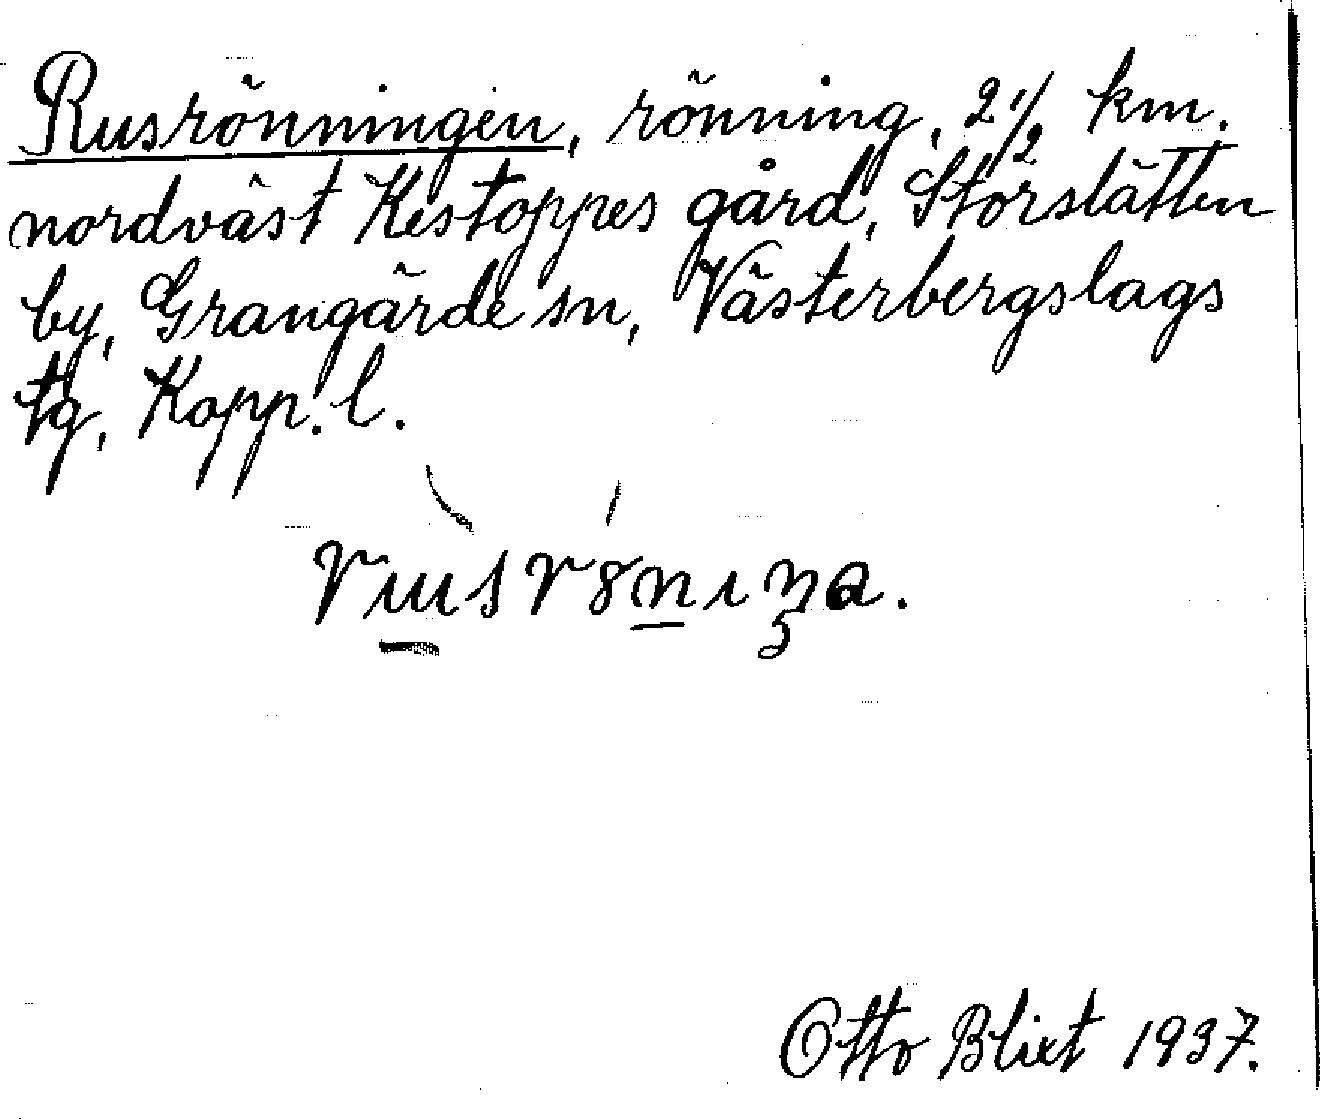 Rusrönningen, rönning, 2 1/2 km.
nordväst Kestoppes gård, Storslätten
by, Grangärde sn, Västerbergslags
tg, Kopp. l.
Otto Blixt 1937.